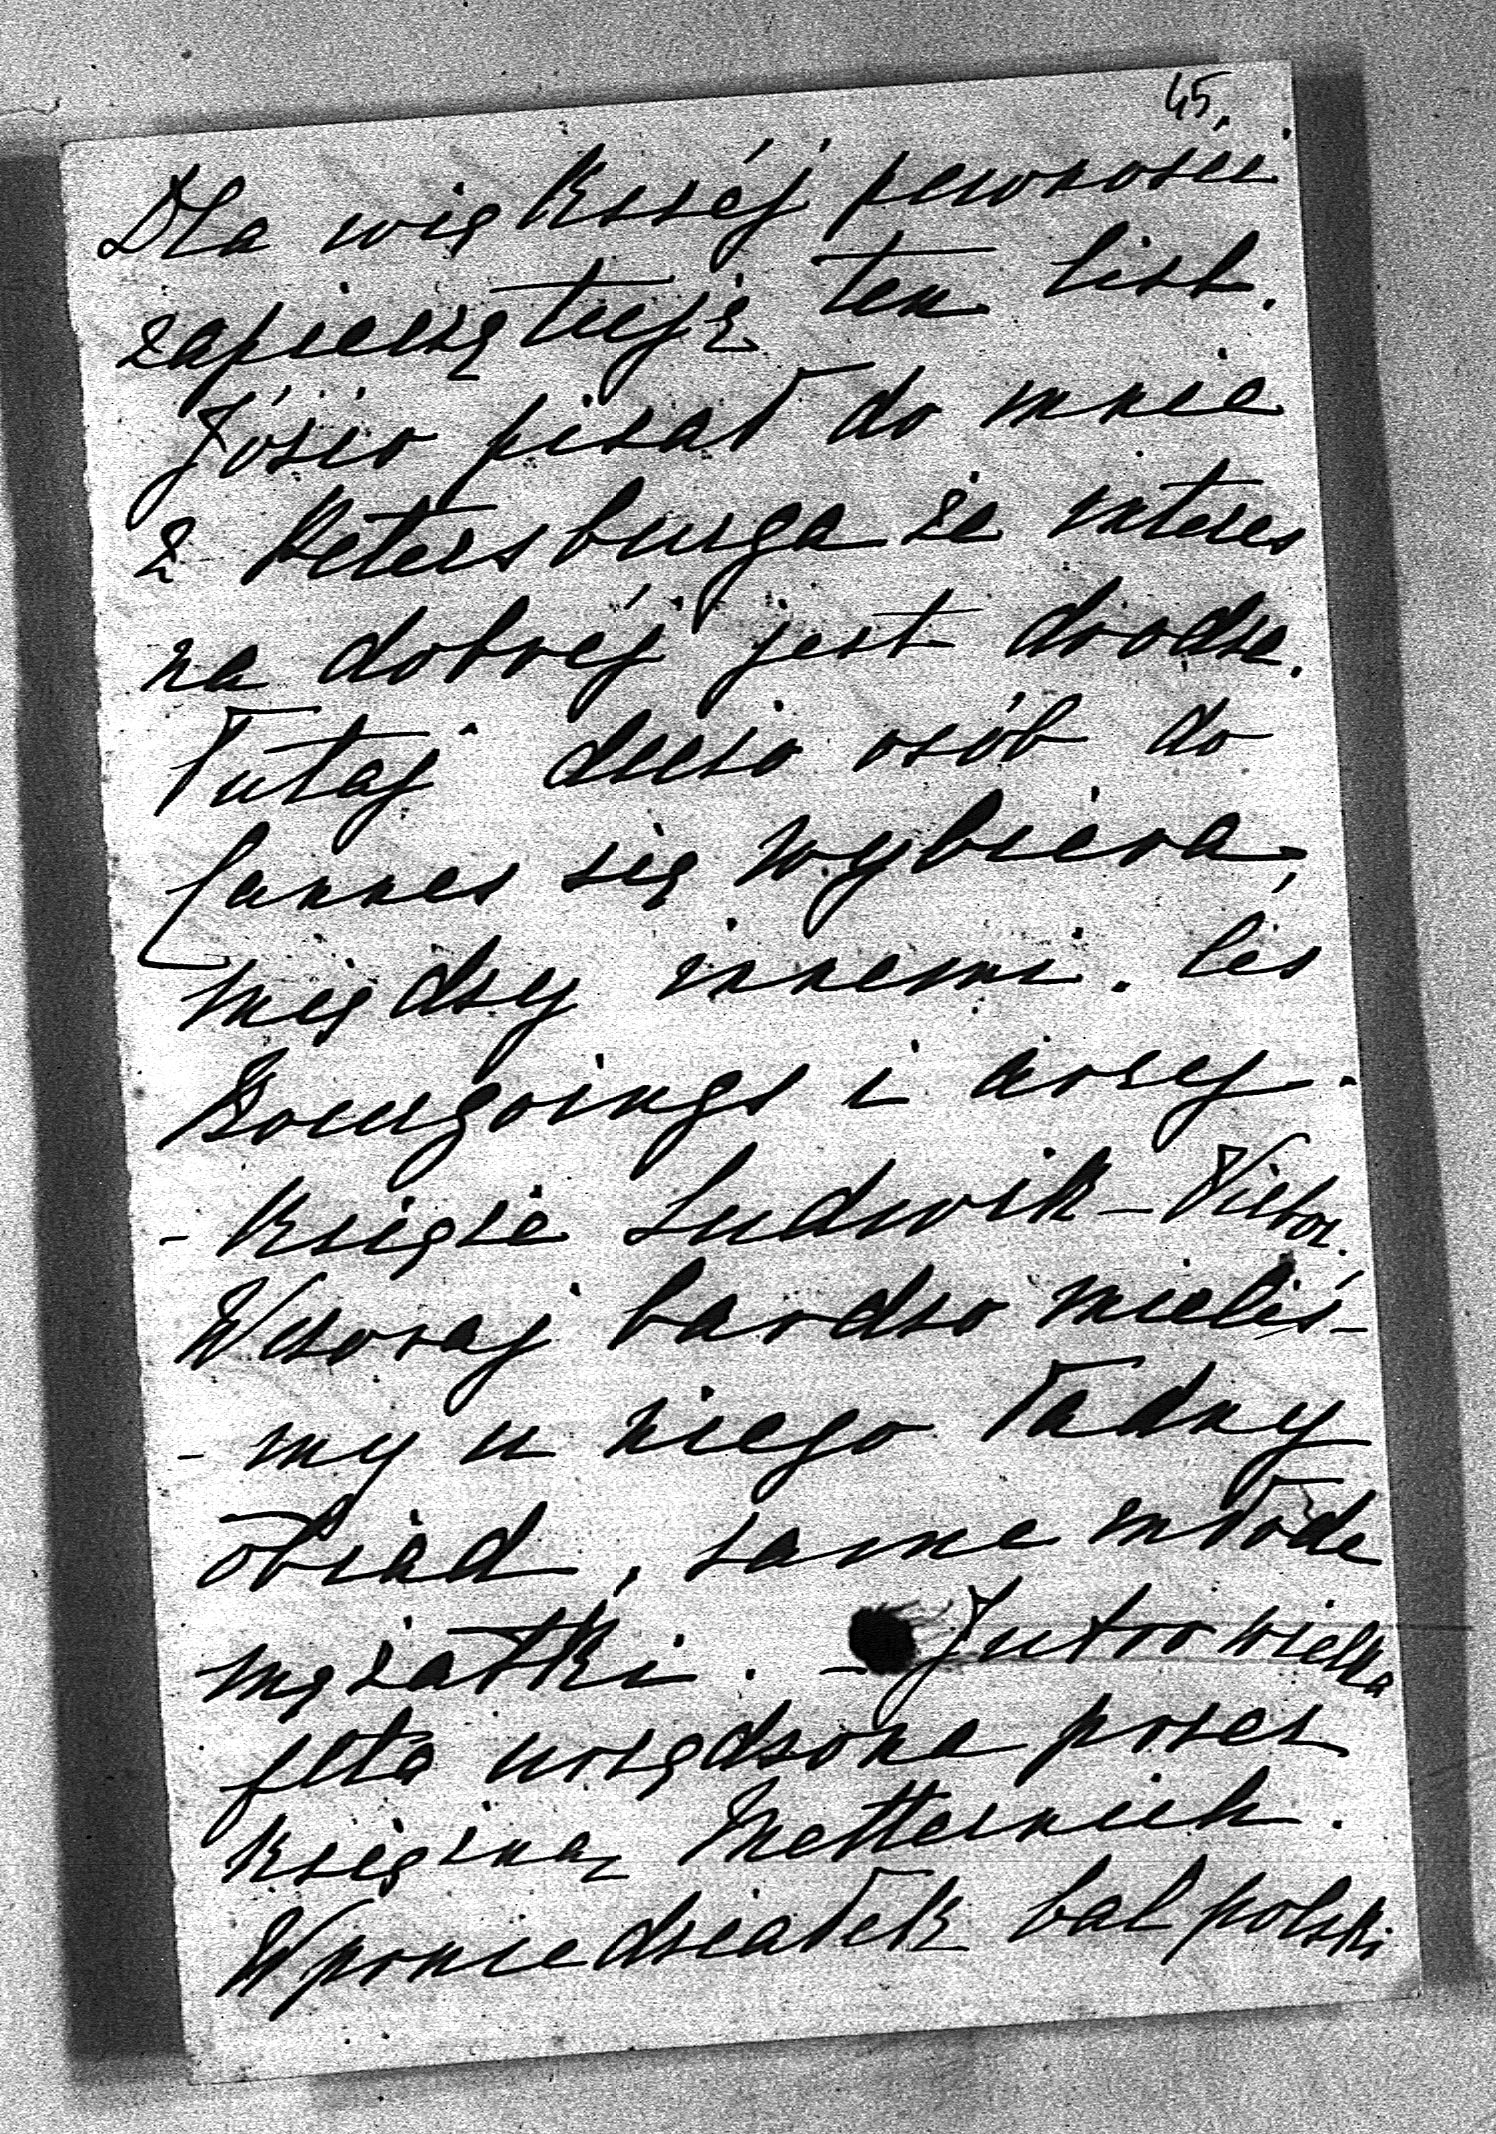 45.
Dla większéj pewności
zapieczętuję ten list.
Józio pisał do mnie
z Petersburga że interes
na dobréj jest drodze.
Tutaj dużo osób do
Cannes się wybiera,
między innemi les
Bourgoings i arcy-
- książe Ludwik - Victor.
Wczoraj bardzo mieliś-
- my u niego ładny
obiad, same młode
mężatki. - Jutro wielka
feta urządzona przez
księżnę Metternich.
W poniedziałek bal polski